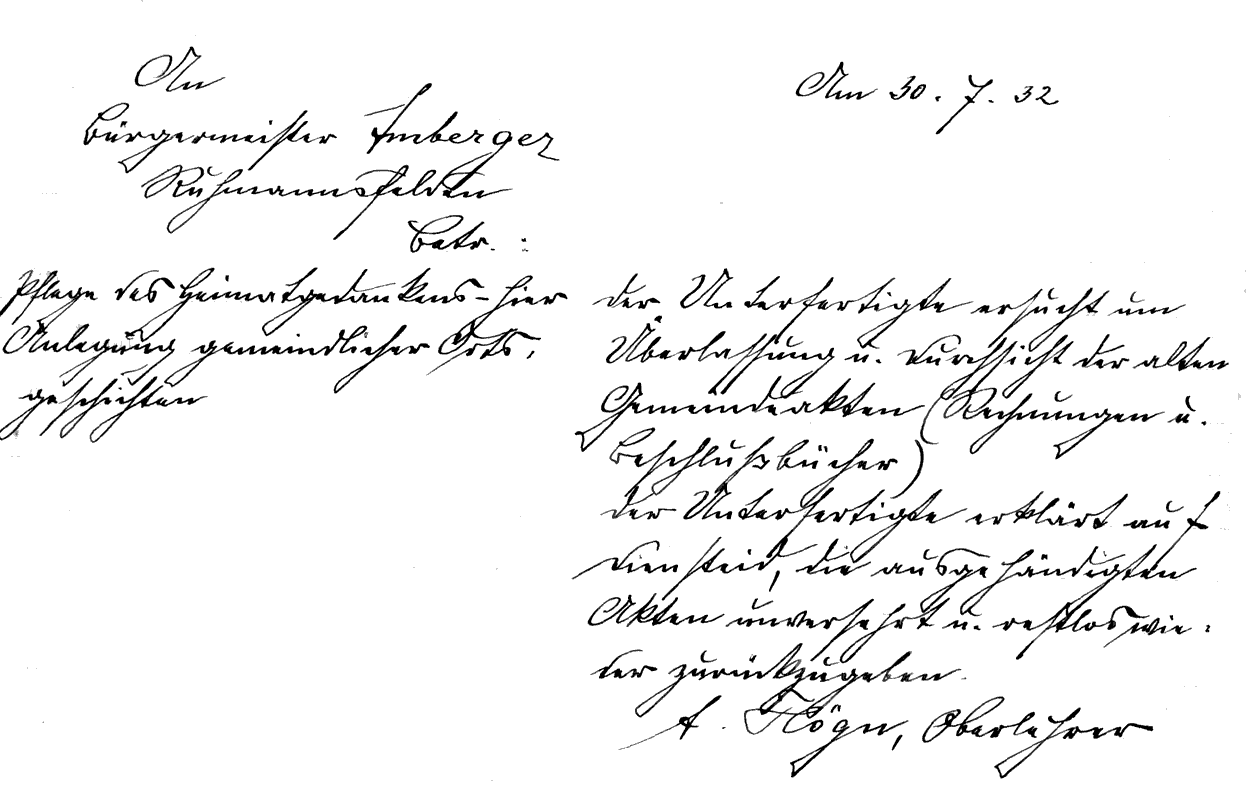 An
Bürgermeister Imberger
Ruhmannsfelden
Am 30. 7. 32
Betr. :
Pflege des Heimatgedankens - hier
Anlegung gemeindlicher Orts,
geschichten
der Unterfertigte ersucht um
Überlassung u. Durchsicht der alten
Gemeindeakten (Rechnungen u.
Beschlußbücher)
der Unterfertigte erklärt auf
Diensteid, die ausgehändigten
Akten unversehrt u. restlos wie-
der zurückzugeben.
A. Högn, Oberlehrer